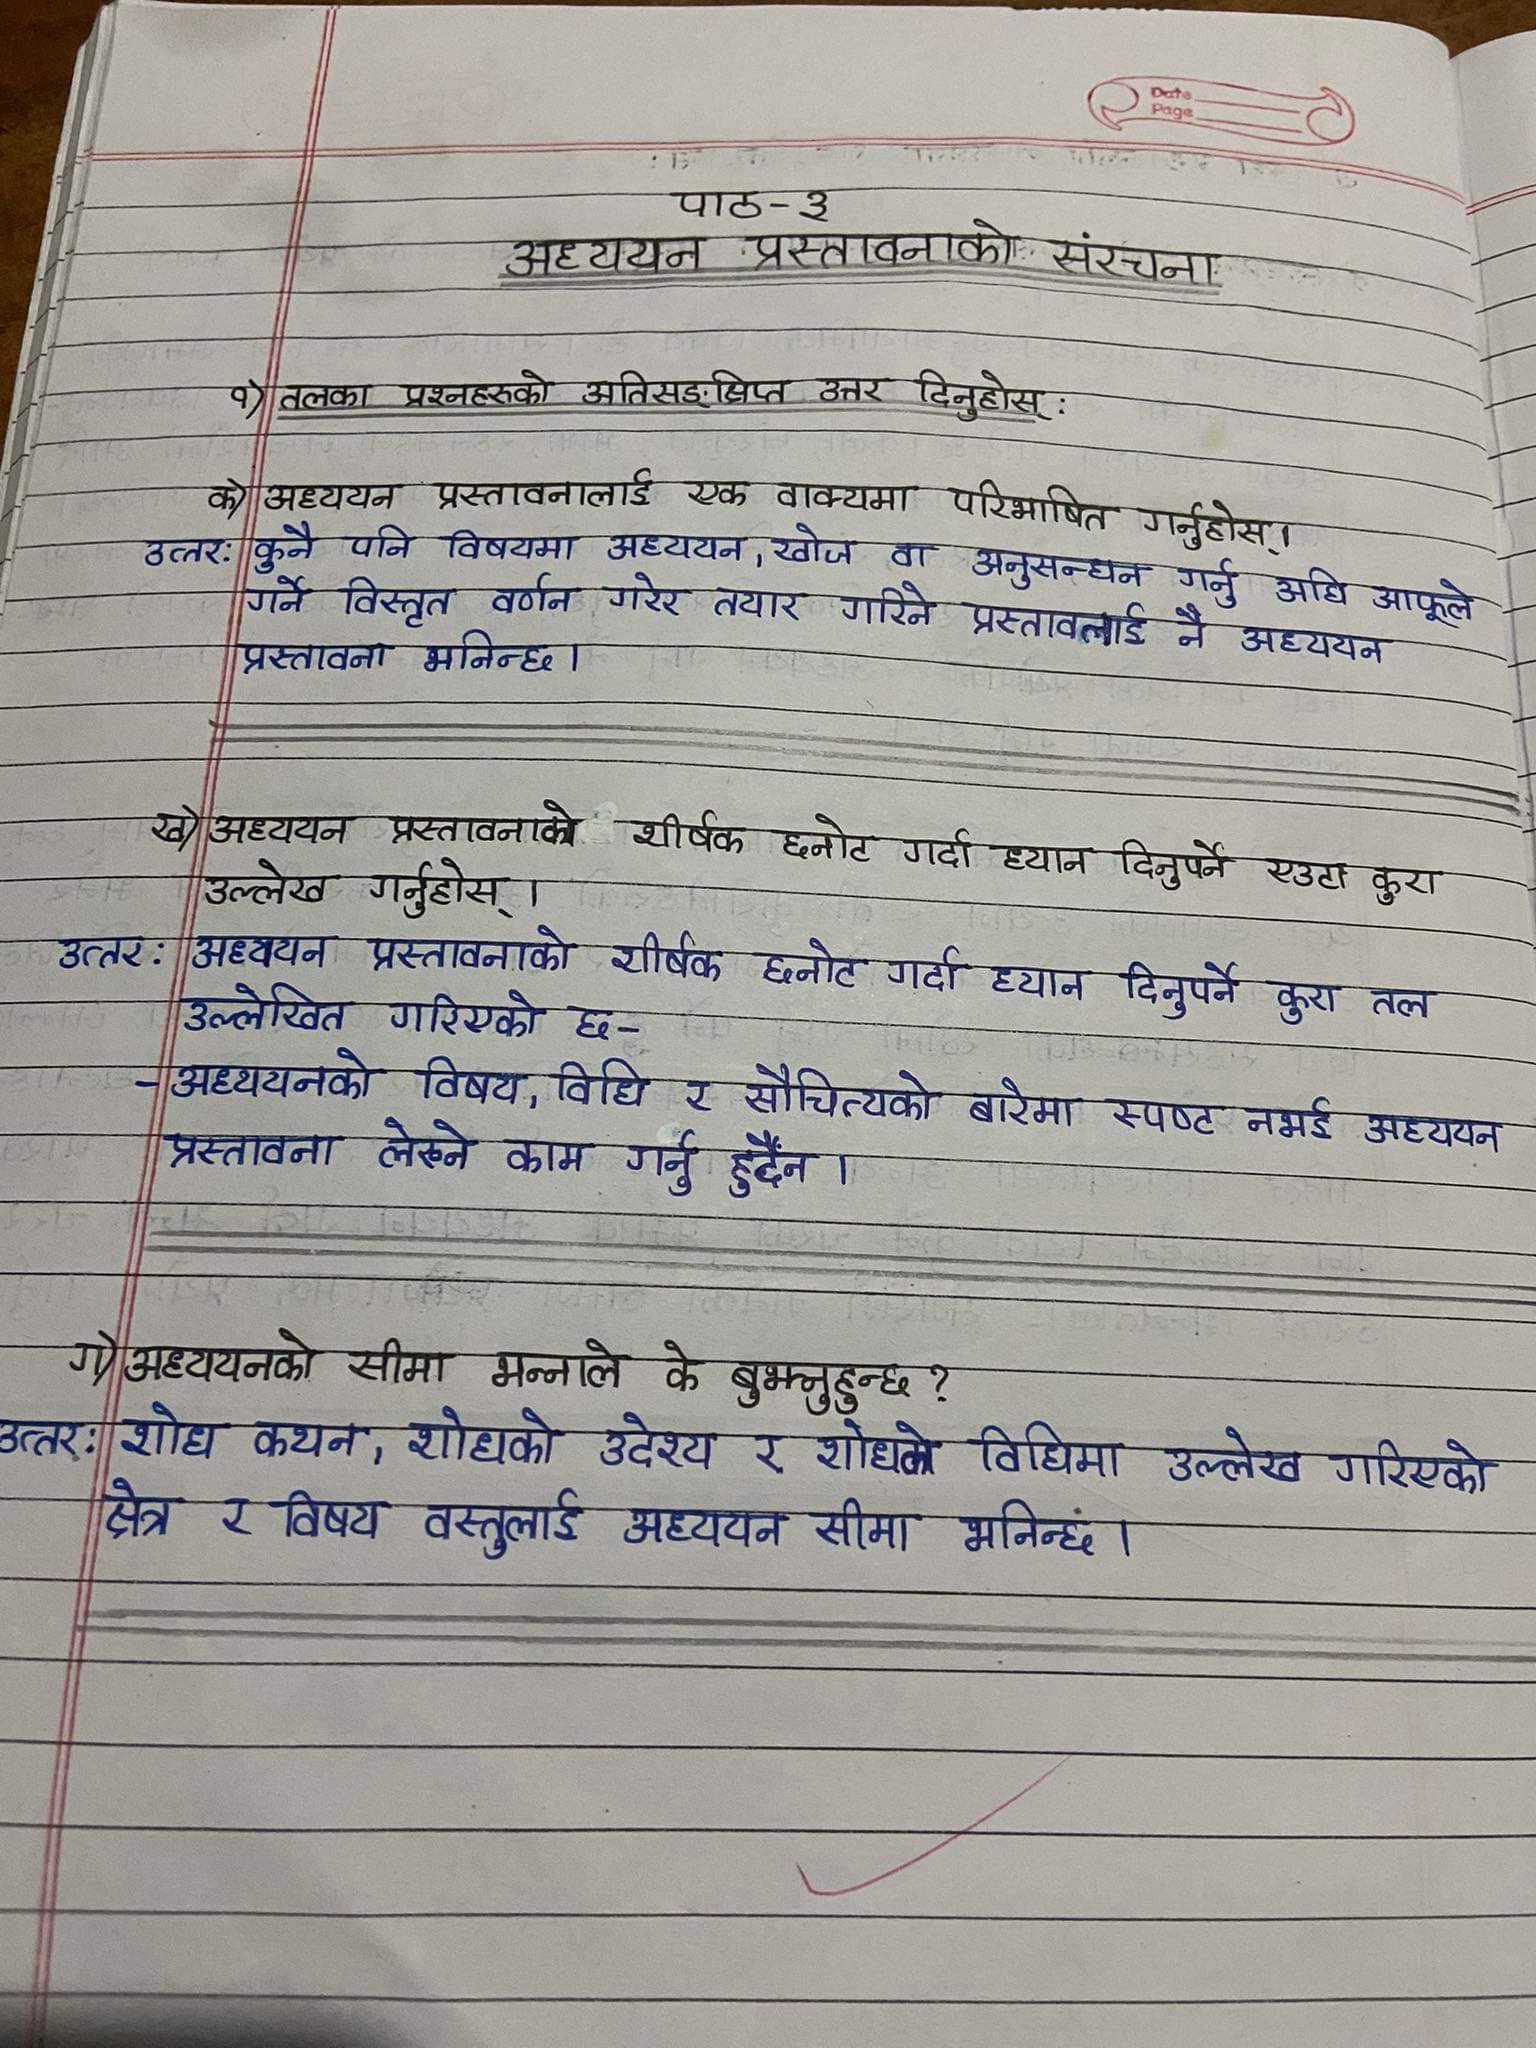 Date
Page
पाठ-३
अध्ययन प्रस्तावनाको संरचना
१) तलका प्रश्नहरुको अतिसङ्क्षिप्त उत्तर दिनुहोस् :
क) अध्ययन प्रस्तावनालाई एक वाक्यमा परिभाषित गर्नुहोस्।
उत्तर: कुनै पनि विषयमा अध्ययन, खोज वा अनुसन्धान गर्नु अघि आफूले
गर्ने विस्तृत वर्णन गरेर तयार गरिने प्रस्तावलाई नै अध्ययन
प्रस्तावना भनिन्छ।
ख) अध्ययन प्रस्तावनाको शीर्षक छनोट गर्दा ध्यान दिनुपर्ने एउटा कुरा
उल्लेख गर्नुहोस्।
उत्तर: अध्ययन प्रस्तावनाको शीर्षक छनोट गर्दा ध्यान दिनुपर्ने कुरा तल
उल्लेखित गरिएको छ-
- अध्ययनको विषय, विधि र सौचित्यको बारेमा स्पष्ट नभई अध्ययन
प्रस्तावना लेख्ने काम गर्नु हुदैँन।
ग) अध्ययनको सीमा भन्नाले के बुझ्नुहुन्छ?
उत्तर: शोध कथन, शोधको उदेश्य र शोधको विधिमा उल्लेख गरिएको
क्षेत्र र विषय वस्तुलाई अध्ययन सीमा भनिन्छ।